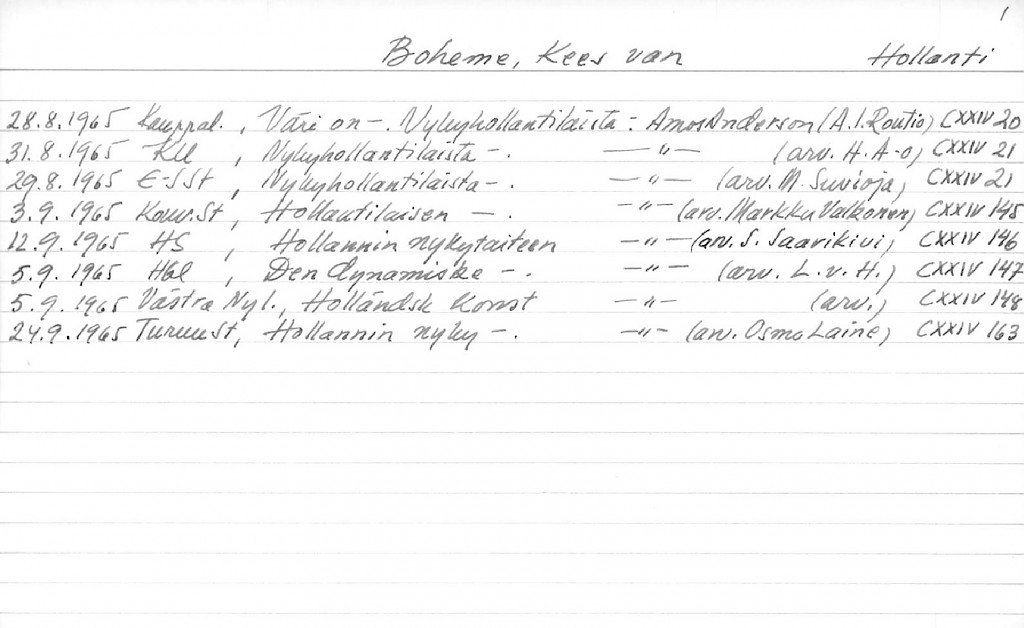 1
Boheme, Kees van Hollanti
28.8.1965 Kauppal., Väri on —. Nykyhollantilaista: Amos Anderson (A.I. Routio) CXXIV 20
31.8.1965 KU, Nykyhollantilaista —. —"— (arv. H. A-o) CXXIV 21
29.8.1965 E-SSt, Nykyhollantilaista —. —"— (arv. M. Suvioja) CXXIV 21
3.9.1965 Kouv.St, Hollantilaisen —. —"— (arv. Markku Valkonen) CXXIV 145
12.9.1965 HS, Hollannin nykytaiteen —"— (arv. S. Saarikivi) CXXIV 146
5.9.1965 Hbl, Den dynamiske —. —"— (arv. L.v.H.) CXXIV 147
5.9.1965 Västra Nyl., Holländsk Konst —"— (arv.) CXXIV 148
24.9.1965 TurunSt, Hollannin nyky —. —"— (arv. Osmo Laine) CXXIV 163